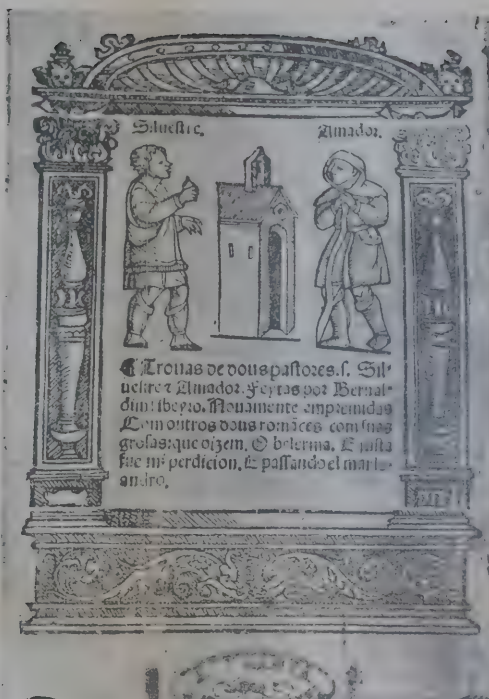 Siluestre. Amador.
¶ Trouas de dous pastores. s. Sil-
uestre ⁊ Amador. Feytas por Bernal-
dim ribeyro. Nouamente empremidas
Com outros dous romãces com suas
grosas: que dizem. O belerma. E justa
fue mi perdicion. E passando el mar le-
andro.